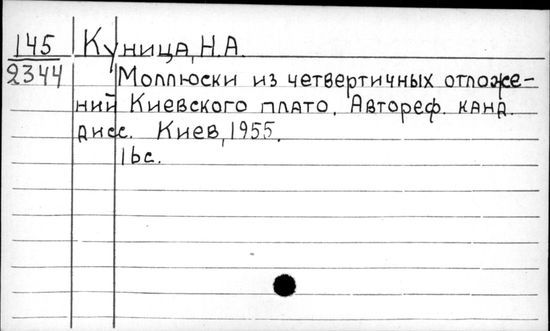 145 Куница, Н.А.
2344 Моллюски из четвертичных отложе-
ний Киевского плато. Автореф. канд.
дисс. Киев, 1955.
16с.